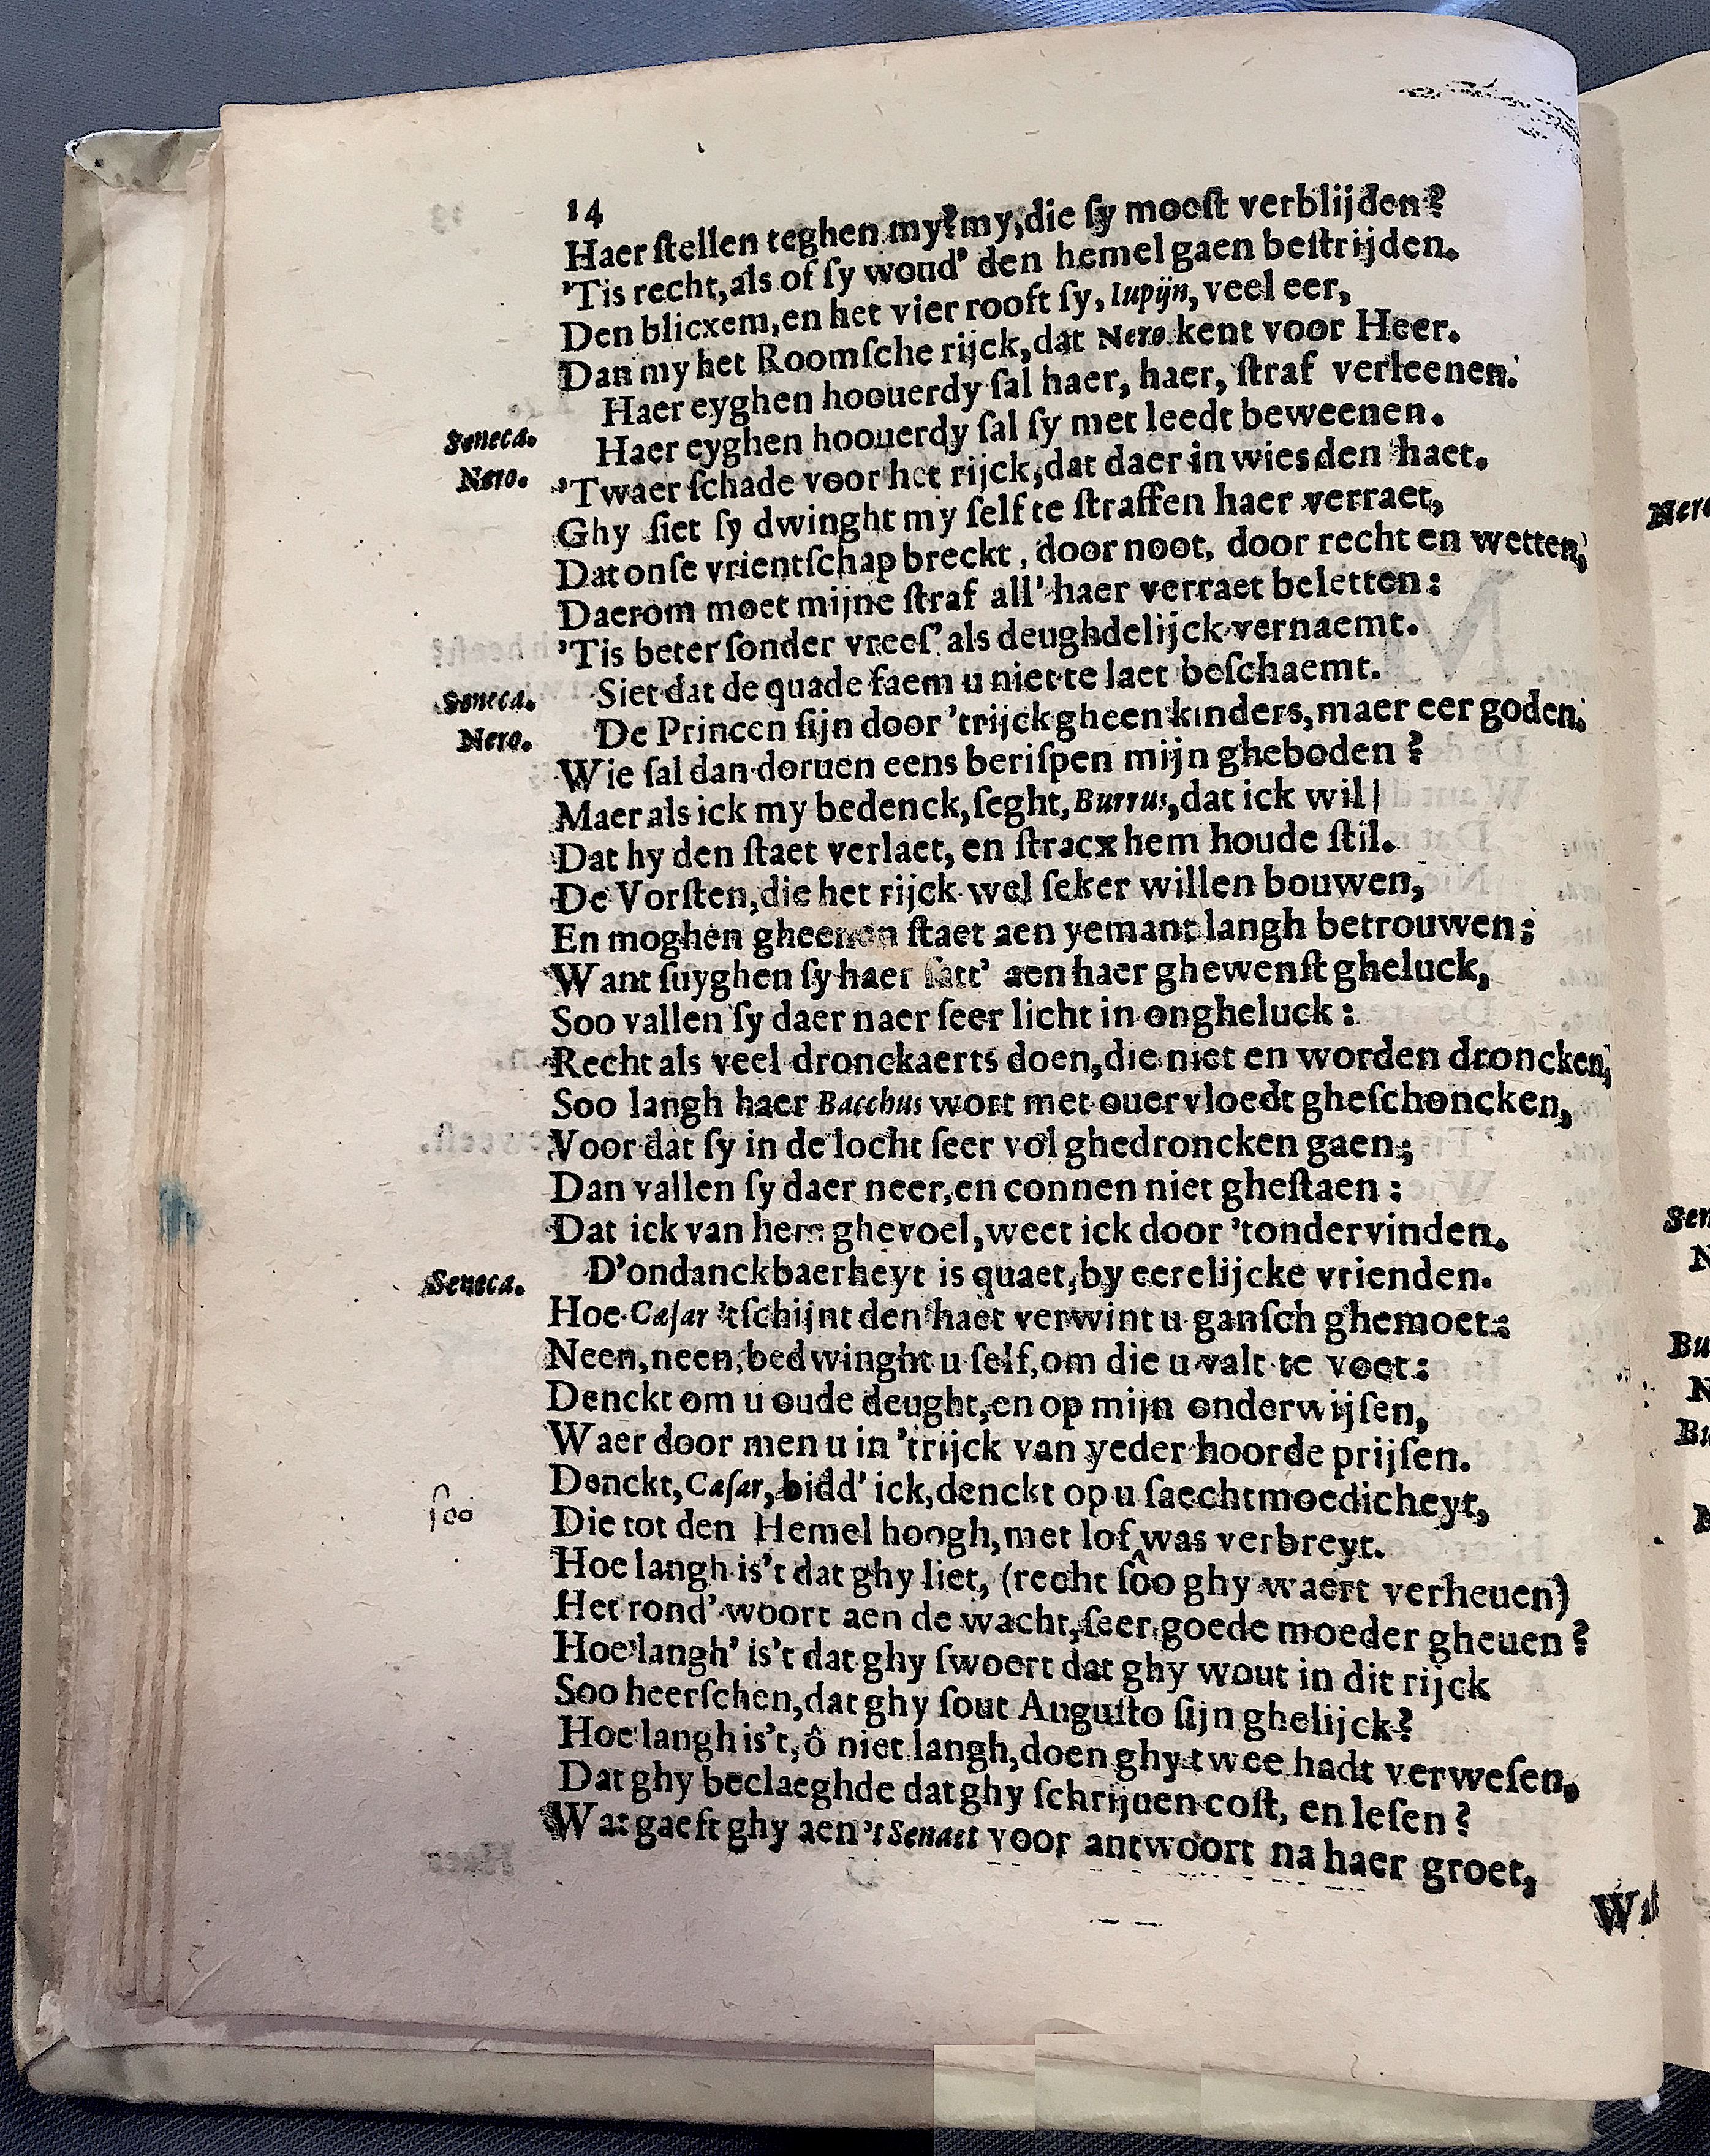 14
Haer ſtellen teghen my? my, die ſy moeſt verblijden?
'Tis recht, als of ſy woud' den hemel gaen beſtrijden.
Den blicxem, en het vier rooft ſy, Iupijn, veel eer,
Dan my het Roomſche rijck, dat Nero kent voor Heer.
Haer eyghen hoouerdy ſal haer, haer, ſtraf verleenen.
Seneca. Haer eyghen hoouerdy ſal ſy met leedt beweenen.
Nero. 'Twaer ſchade voor het rijck, dat daer in wies den haet.
Ghy ſiet ſy dwinght my ſelf te ſtraffen haer verraet,
Dat onſe vrientſchap breckt, door noot, door recht en wetten,
Daerom moet mijne ſtraf all' haer verraet beletten:
'Tis beter ſonder vreeſ' als deughdelijck vernaemt.
Seneca. Siet dat de quade faem u niet te laet beſchaemt.
Nero. De Princen ſijn door 'trijck gheen kinders, maer eer goden.
Wie ſal dan doruen eens beriſpen mijn gheboden?
Maer als ick my bedenck, ſeght, Burrus, dat ick wil|
Dat hy den ſtaet verlaet, en ſtracx hem houde ſtil.
De Vorſten, die het rijck wel ſeker willen bouwen,
En moghen gheenen ſtaet aen yemant langh betrouwen;
Want ſuyghen ſy haer ſatt' aen haer ghewenſt gheluck,
Soo vallen ſy daer naer ſeer licht in ongheluck:
Recht als veel dronckaerts doen, die niet en worden droncken,
Soo langh haer Bacchus wort met ouervloedt gheſchoncken,
Voor dat ſy in de locht ſeer vol ghedroncken gaen;
Dan vallen ſy daer neer, en connen niet gheſtaen:
Dat ick van hem ghevoel, weet ick door 'tondervinden.
Seneca. D'ondanckbaerheyt is quaet, by eerelijcke vrienden.
Hoe Cæſar 'tſchijnt den haet verwint u ganſch ghemoet:
Neen, neen, bedwinght u ſelf, om die u valt te voet:
Denckt om u oude deught, en op mijn onderwijſen,
Waer door men u in 'trijck van yeder hoorde prijſen.
Denckt, Cæſar, bidd' ick, denckt op u ſaechtmoedicheyt,
ſoo
Die tot den Hemel hoogh, met lof ‸ was verbreyt.
Hoe langh is't dat ghy liet, (recht ſoo ghy waert verheuen)
Het rond' woort aen de wacht, ſeer goede moeder gheuen?
Hoe langh' is't dat ghy ſwoert dat ghy wout in dit rijck
Soo heerſchen, dat ghy ſout Auguſto ſijn ghelijck?
Hoe langh is't, ô niet langh, doen ghy twee hadt verweſen,
Dat ghy beclaeghde dat ghy ſchrijuen coſt, en leſen?
Wat gaeft ghy aen 't Senaet voor antwoort na haer groet,